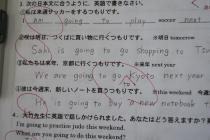 3. 次の日本文に合うように、英語で書きなさい。
①私は来週サッカーをするつもりです。
I am going to play soccer next
②咲は明日、つくばに買い物に行くつもりです。 ※明日 tomorrow
Saki is going to go shopping to Tsu
③私たちは来年、京都に行くつもりです。 ※来年 next year
We are going to go Kyoto next year
④彼は今週末、新しいノートを買うつもりです。
He is going to buy a new notebook
4. 大竹先生に英語で話しかけられました。あなたはどう答えますか？英
I'm going to practice judo this weekend.
What are you going to do this weekend?